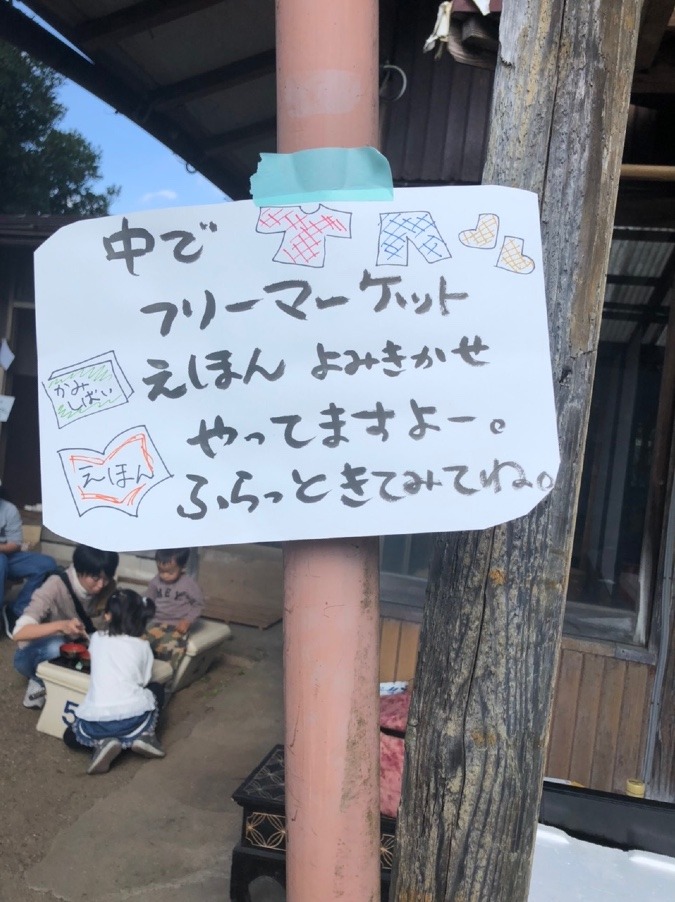 中で
フリーマーケット
えほん よみきかせ
やってますよー。
ふらっときてみてね。
かみ
しばい
えほん
5